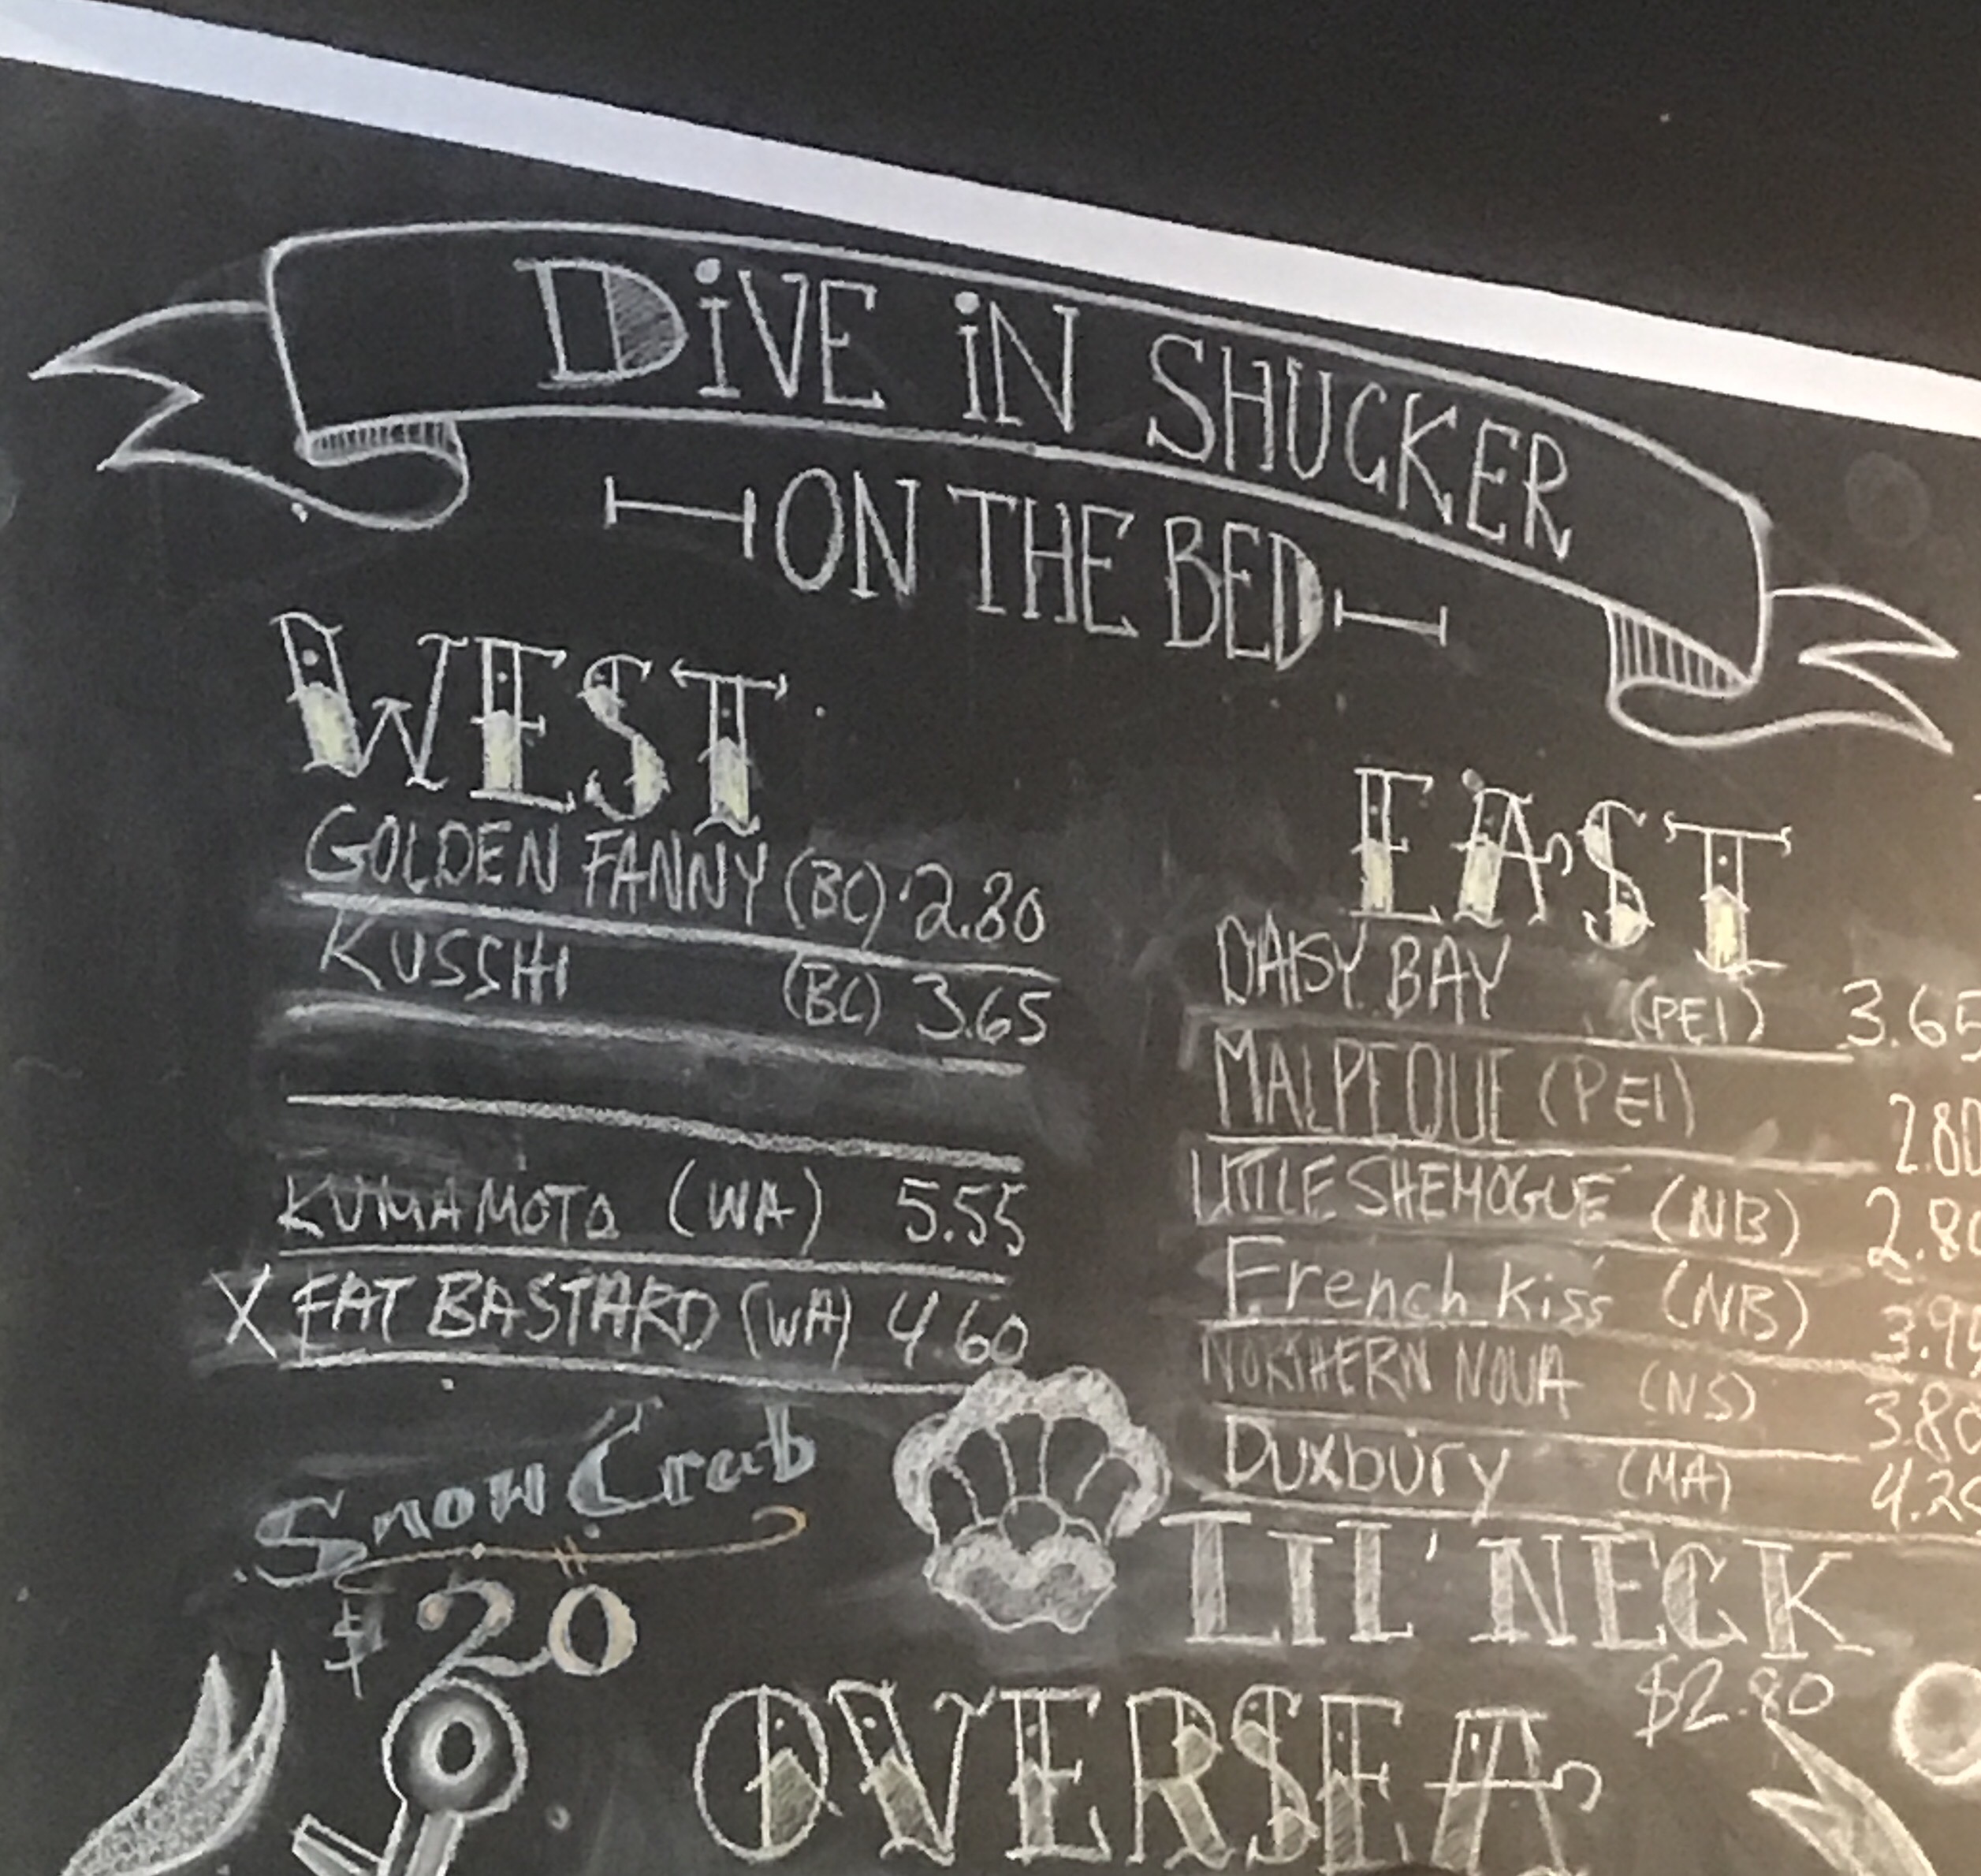 DiVE iN SHUCKER
ON THE BED
WEST
GOLDEN FANNY (BC) 2.80
KUSSHI (BC) 3.65
KUMAMOTO (WA) 5.55
X FAT BASTARD (WA) 4.60
Snow Crab
$20
EAST
DAISY BAY (PEI) 3.65
MALPEQUE (PEI) 2.80
LITTLE SHEMOGUE (NB) 2.80
French kiss (NB)
NORTHERN NOVA (NS) 3.80
Duxbury (MA)
LIL' NECK
$2.80
OVERSEA